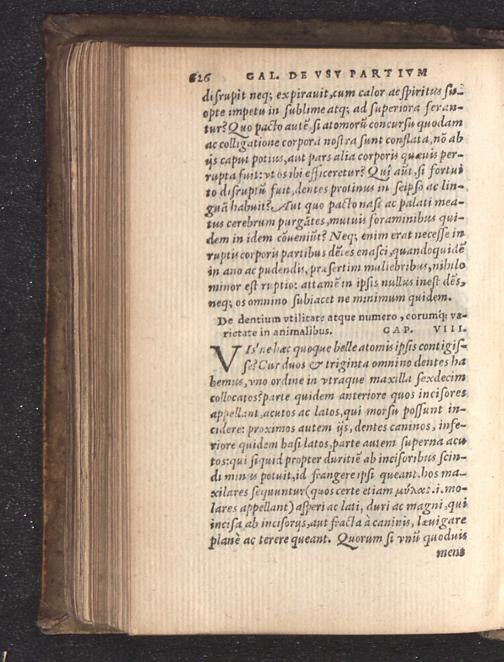 626 GAL. DE VSV PARTIVM
disrupit neq; expirauit, cum calor ac spiritus su-
opte impetu in sublime atq; ad superiora feran-
tur? Quo pacto autē si atomorū concursu quodam
ac colligatione corpora nostra sunt conflata, nō ab
ijs caput potius, aut pars alia corporis quæuis per-
rupta fuit: vt os ibi efficeretur? Quî aūt si fortui
to disruptū fuit, dentes protinus in seipso ac lin-
guā habuit? Aut quo pacto nasi ac palati mea-
tus cerebrum purgātes, mutuis foraminibus qui-
dem in idem cōueniūt? Neq; enim erat necesse in
ruptis corporis partibus dētes enasci, quandoquidē
in ano ac pudendis, præsertim muliebribus, nihilo
minor est ruptio: attamē in ipsis nullus inest dēs,
neq; os omnino subiacet ne minimum quidem.
De dentium vtilitate atque numero, eorumq; va-
rietate in animalibus. CAP. VIII.
VIs'ne hæc quoque belle atomis ipsis contigis-
se? Cur duos & triginta omnino dentes ha
bemus, vno ordine in vtraque maxilla sexdecim
collocatos? parte quidem anteriore quos incisores
appellant, acutos ac latos, qui morsu possunt in-
cidere: proximos autem ijs, dentes caninos, infe-
riore quidem basi latos, parte autem superna acu
tos: qui si quid propter duritiē ab incisoribus scin-
di minus potuit, id frangere ipsi queant. hos ma-
xilares sequuntur (quos certe etiam μύλας .i. mo-
lares appellant) asperi ac lati, duri ac magni, qui
incisa ab incisorijs, aut fracta à caninis, læuigare
planè ac terere queant. Quorum si vnū quoduis
mens